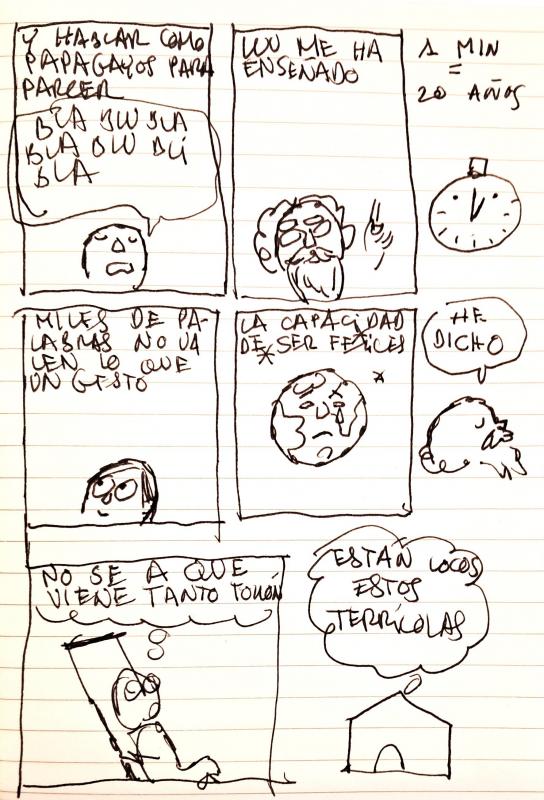 Y HABLAR COMO
PAPAGAYOS PARA
PARCER
BLA BLU BLA
BLA BLU BLI
BLA
ME HA
ENSEÑADO
1 MIN
=
20 AÑOS
MILES DE PA-
LABRAS NO VA
LEN LO QUE
UN GESTO
LA CAPACIDAD
DE SER FELICES
HE
DICHO
NO SE A QUE
VIENE TANTO
ESTÁN LOCOS
ESTOS
TERRÍCOLAS